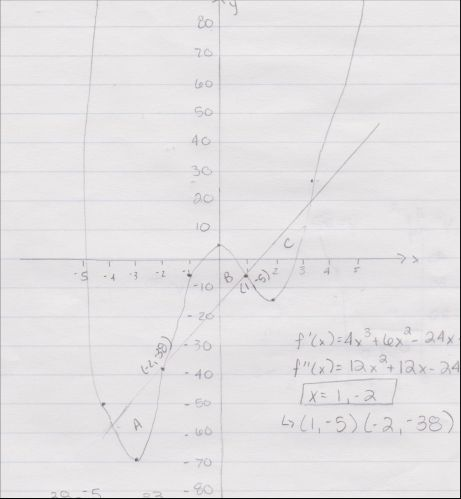 y
80
70
60
50
40
30
20
10
-5 -4 -3 -2 -1 1 2 3 4 5 x
-10
-20
-30
-40
-50
-60
-70
-80
A
B
C
(1,-5)
(-2,-38)
f'(x)=4x³+6x²-24x
f''(x)=12x²+12x-24
x=1,-2
↳(1,-5)(-2,-38)